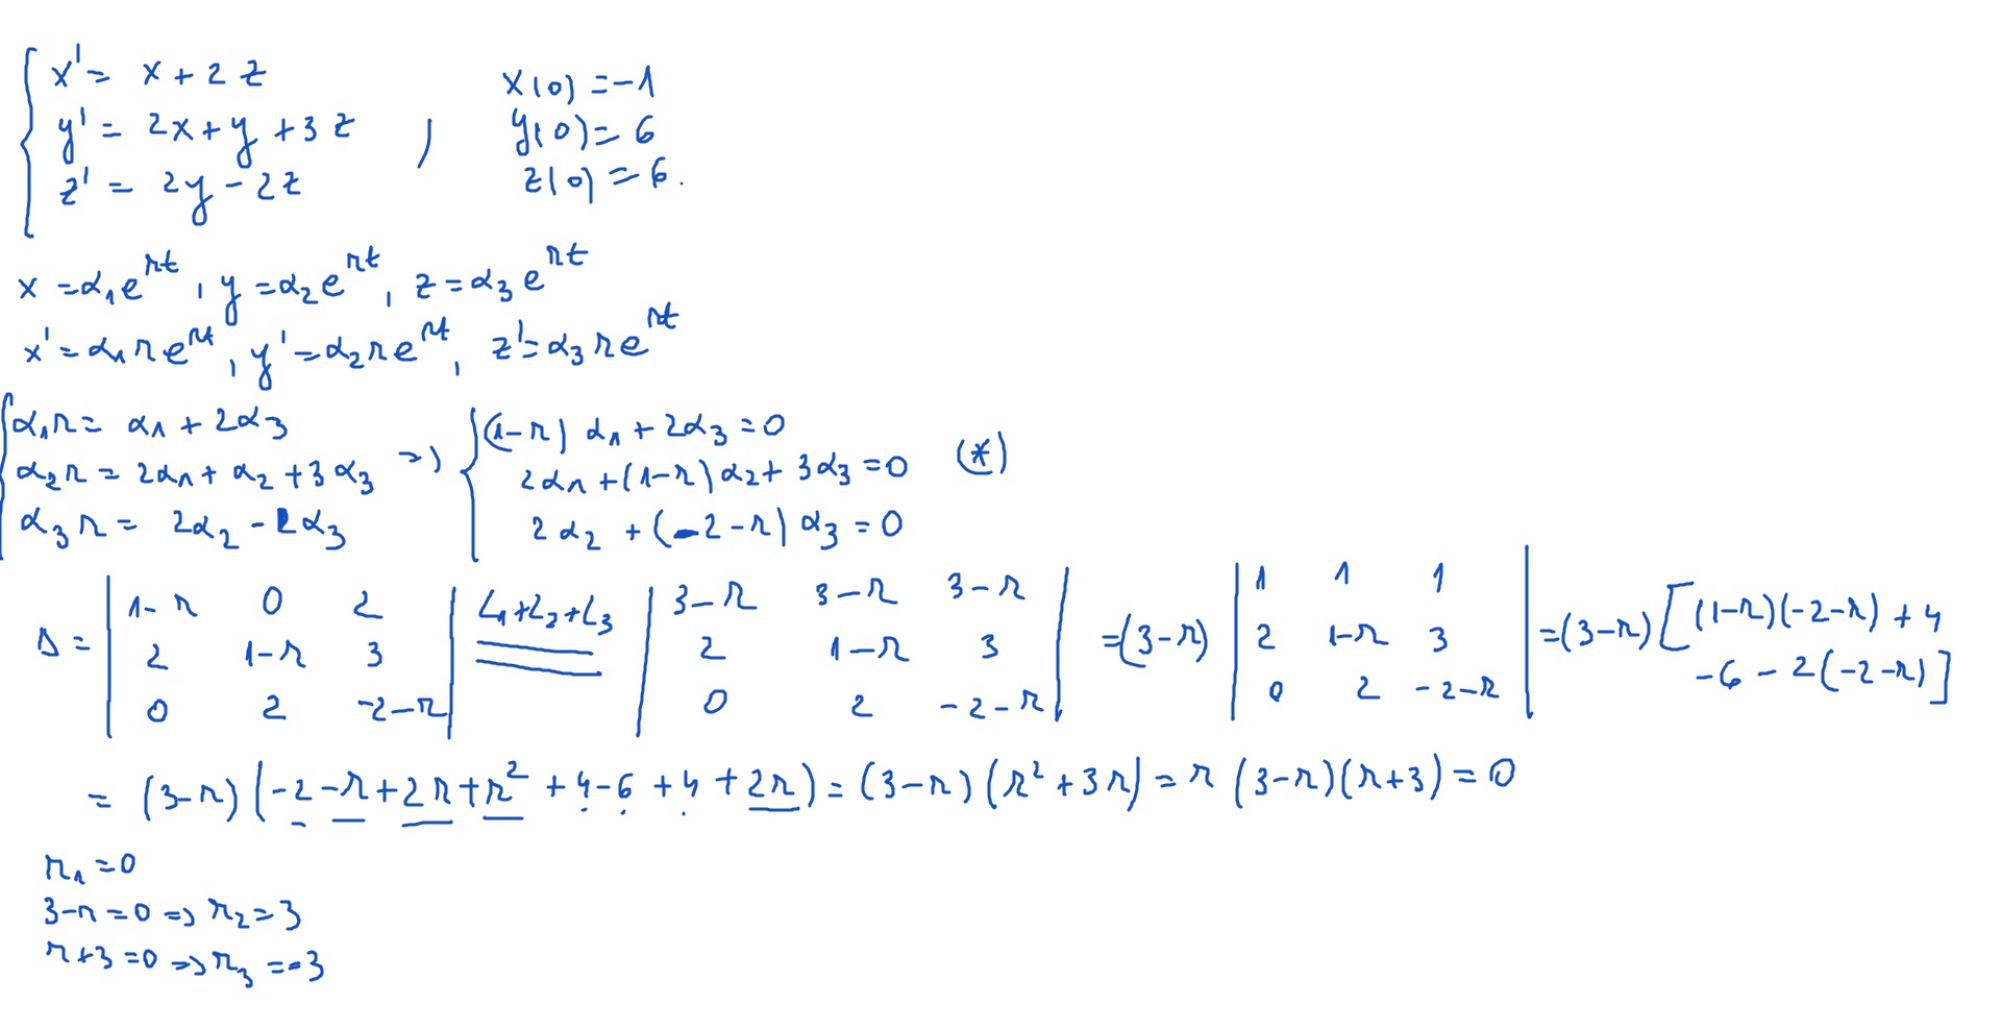 x' = x + 2z
y' = 2x + y + 3z ,
z' = 2y - 2z
x(0) = -1
y(0) = 6
z(0) = 6.
x = α₁e^{rt}, y = α₂e^{rt}, z = α₃e^{rt}
x' = α₁re^{rt}, y' = α₂re^{rt}, z' = α₃re^{rt}
α₁r = α₁ + 2α₃
α₂r = 2α₁ + α₂ + 3α₃
α₃r = 2α₂ - 2α₃
=> (1-r)α₁ + 2α₃ = 0
2α₁ + (1-r)α₂ + 3α₃ = 0 (*)
2α₂ + (-2-r)α₃ = 0
Δ = | 1-r 0 2 |
| 2 1-r 3 |
| 0 2 -2-r |
L₁+L₂+L₃
=
| 3-r 3-r 3-r |
| 2 1-r 3 |
| 0 2 -2-r |
= (3-r)
| 1 1 1 |
| 2 1-r 3 |
| 0 2 -2-r |
= (3-r) [ (1-r)(-2-r) + 4
- 6 - 2(-2-r) ]
= (3-r)(-2-r+2r+r² + 4-6 + 4 + 2r) = (3-r)(r² + 3r) = r(3-r)(r+3) = 0
r₁ = 0
3-r = 0 => r₂ = 3
r+3 = 0 => r₃ = -3